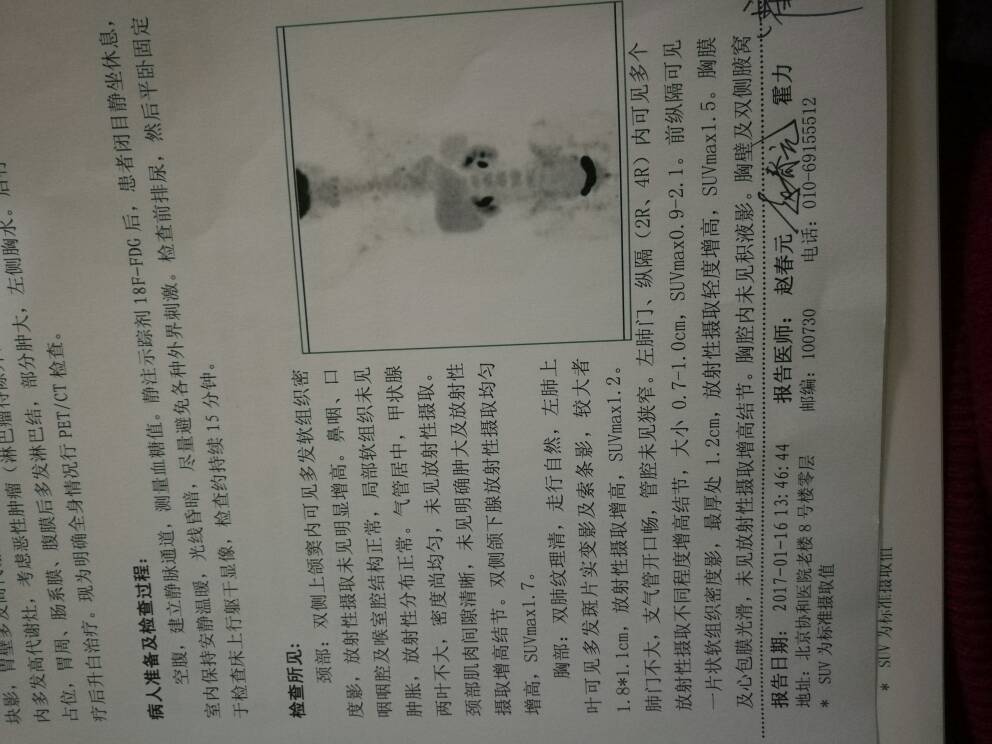 块影，胃壁多发高代谢
内多发高代谢灶，考虑恶性肿瘤（淋巴瘤待除外
占位，胃周、肠系膜、腹膜后多发淋巴结，部分肿大，左侧胸水。后行
疗后升白治疗。现为明确全身情况行 PET/CT 检查。
病人准备及检查过程：
空腹，建立静脉通道，测量血糖值。静注示踪剂 18F-FDG 后，患者闭目静坐休息，
室内保持安静温暖，光线昏暗，尽量避免各种外界刺激。检查前排尿，然后平卧固定
于检查床上行躯干显像，检查约持续 15 分钟。
检查所见：
颈部：双侧上颌窦内可见多发软组织密
度影，放射性摄取未见明显增高。鼻咽、口
咽咽腔及喉室腔结构正常，局部软组织未见
肿胀，放射性分布正常。气管居中，甲状腺
两叶不大，密度尚均匀，未见放射性摄取。
颈部肌肉间隙清晰，未见明确肿大及放射性
摄取增高结节。双侧颌下腺放射性摄取均匀
增高，SUVmax1.7。
胸部：双肺纹理清，走行自然，左肺上
叶可见多发斑片实变影及索条影，较大者
1.8*1.1cm，放射性摄取增高，SUVmax1.2。
肺门不大，支气管开口畅，管腔未见狭窄。左肺门、纵隔（2R、4R）内可见多个
放射性摄取不同程度增高结节，大小 0.7-1.0cm，SUVmax0.9-2.1。前纵隔可见
一片状软组织密度影，最厚处 1.2cm，放射性摄取轻度增高，SUVmax1.5。胸膜
及心包膜光滑，未见放射性摄取增高结节。胸腔内未见积液影。胸壁及双侧腋窝
报告日期： 2017-01-16 13:46:44 报告医师： 赵春元 霍力
地址：北京协和医院老楼 8 号楼零层 邮编：100730 电话：010-69155512
* SUV 为标准摄取值
* SUV 为标准摄取值